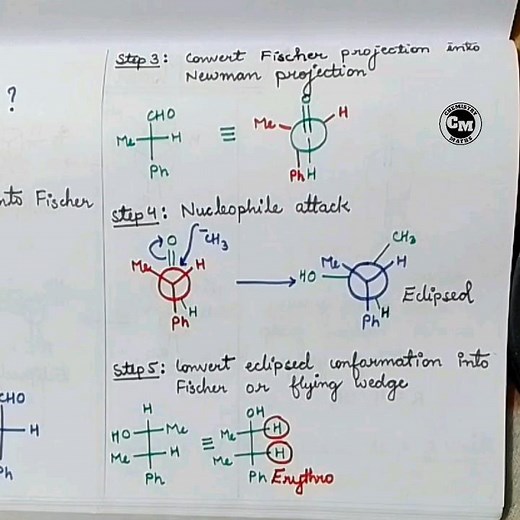 Step 3: Convert Fischer projection into
Newman projection
?
CHO
Me H
Ph
≡
O
Me H
Ph H
CHEMISTRY
CM
MATHS
nto Fischer
Step 4: Nucleophile attack
O
⁻CH₃
Me H
H
Ph
CH₃
Me H
HO
H
Ph
Eclipsed
Step 5: Convert eclipsed conformation into
Fischer or flying wedge
CHO
H
Ph
H
HO Me
Me H
Ph
≡
OH
Me H
Me H
Ph Erythro